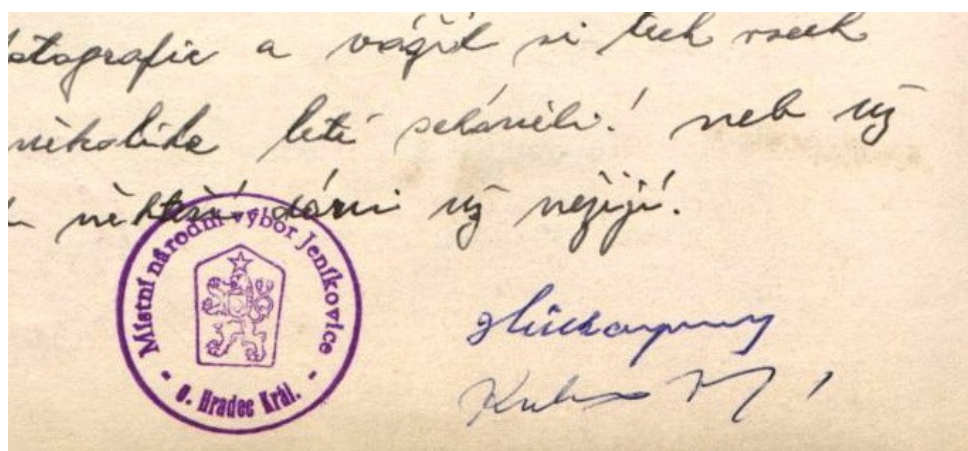 a vážit si těch všech
několika letí scháněli! neb už
někteří dárci už nežijí.
Místní národní výbor Jeníkovice
- o. Hradec Král. -